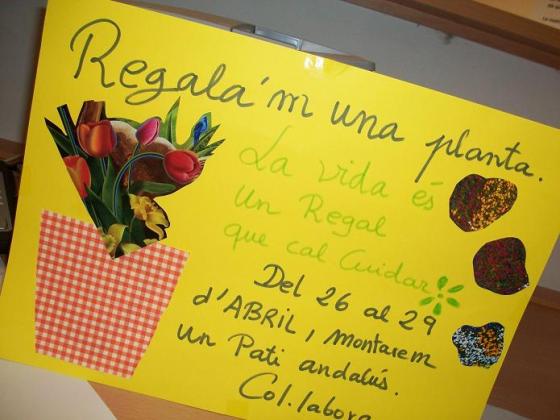 Regala'm una planta.
La vida és
un Regal
que cal Cuidar
Del 26 al 29
d'ABRIL, montarem
un Pati andalús.
Col.labora